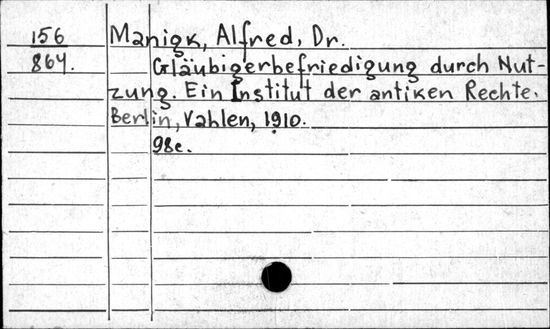 156
864.
Manigk, Alfred, Dr.
Gläubigerbefriedigung durch Nut-
zung. Ein Institut der antiken Rechte.
Berlin, Vahlen, 1910.
98c.